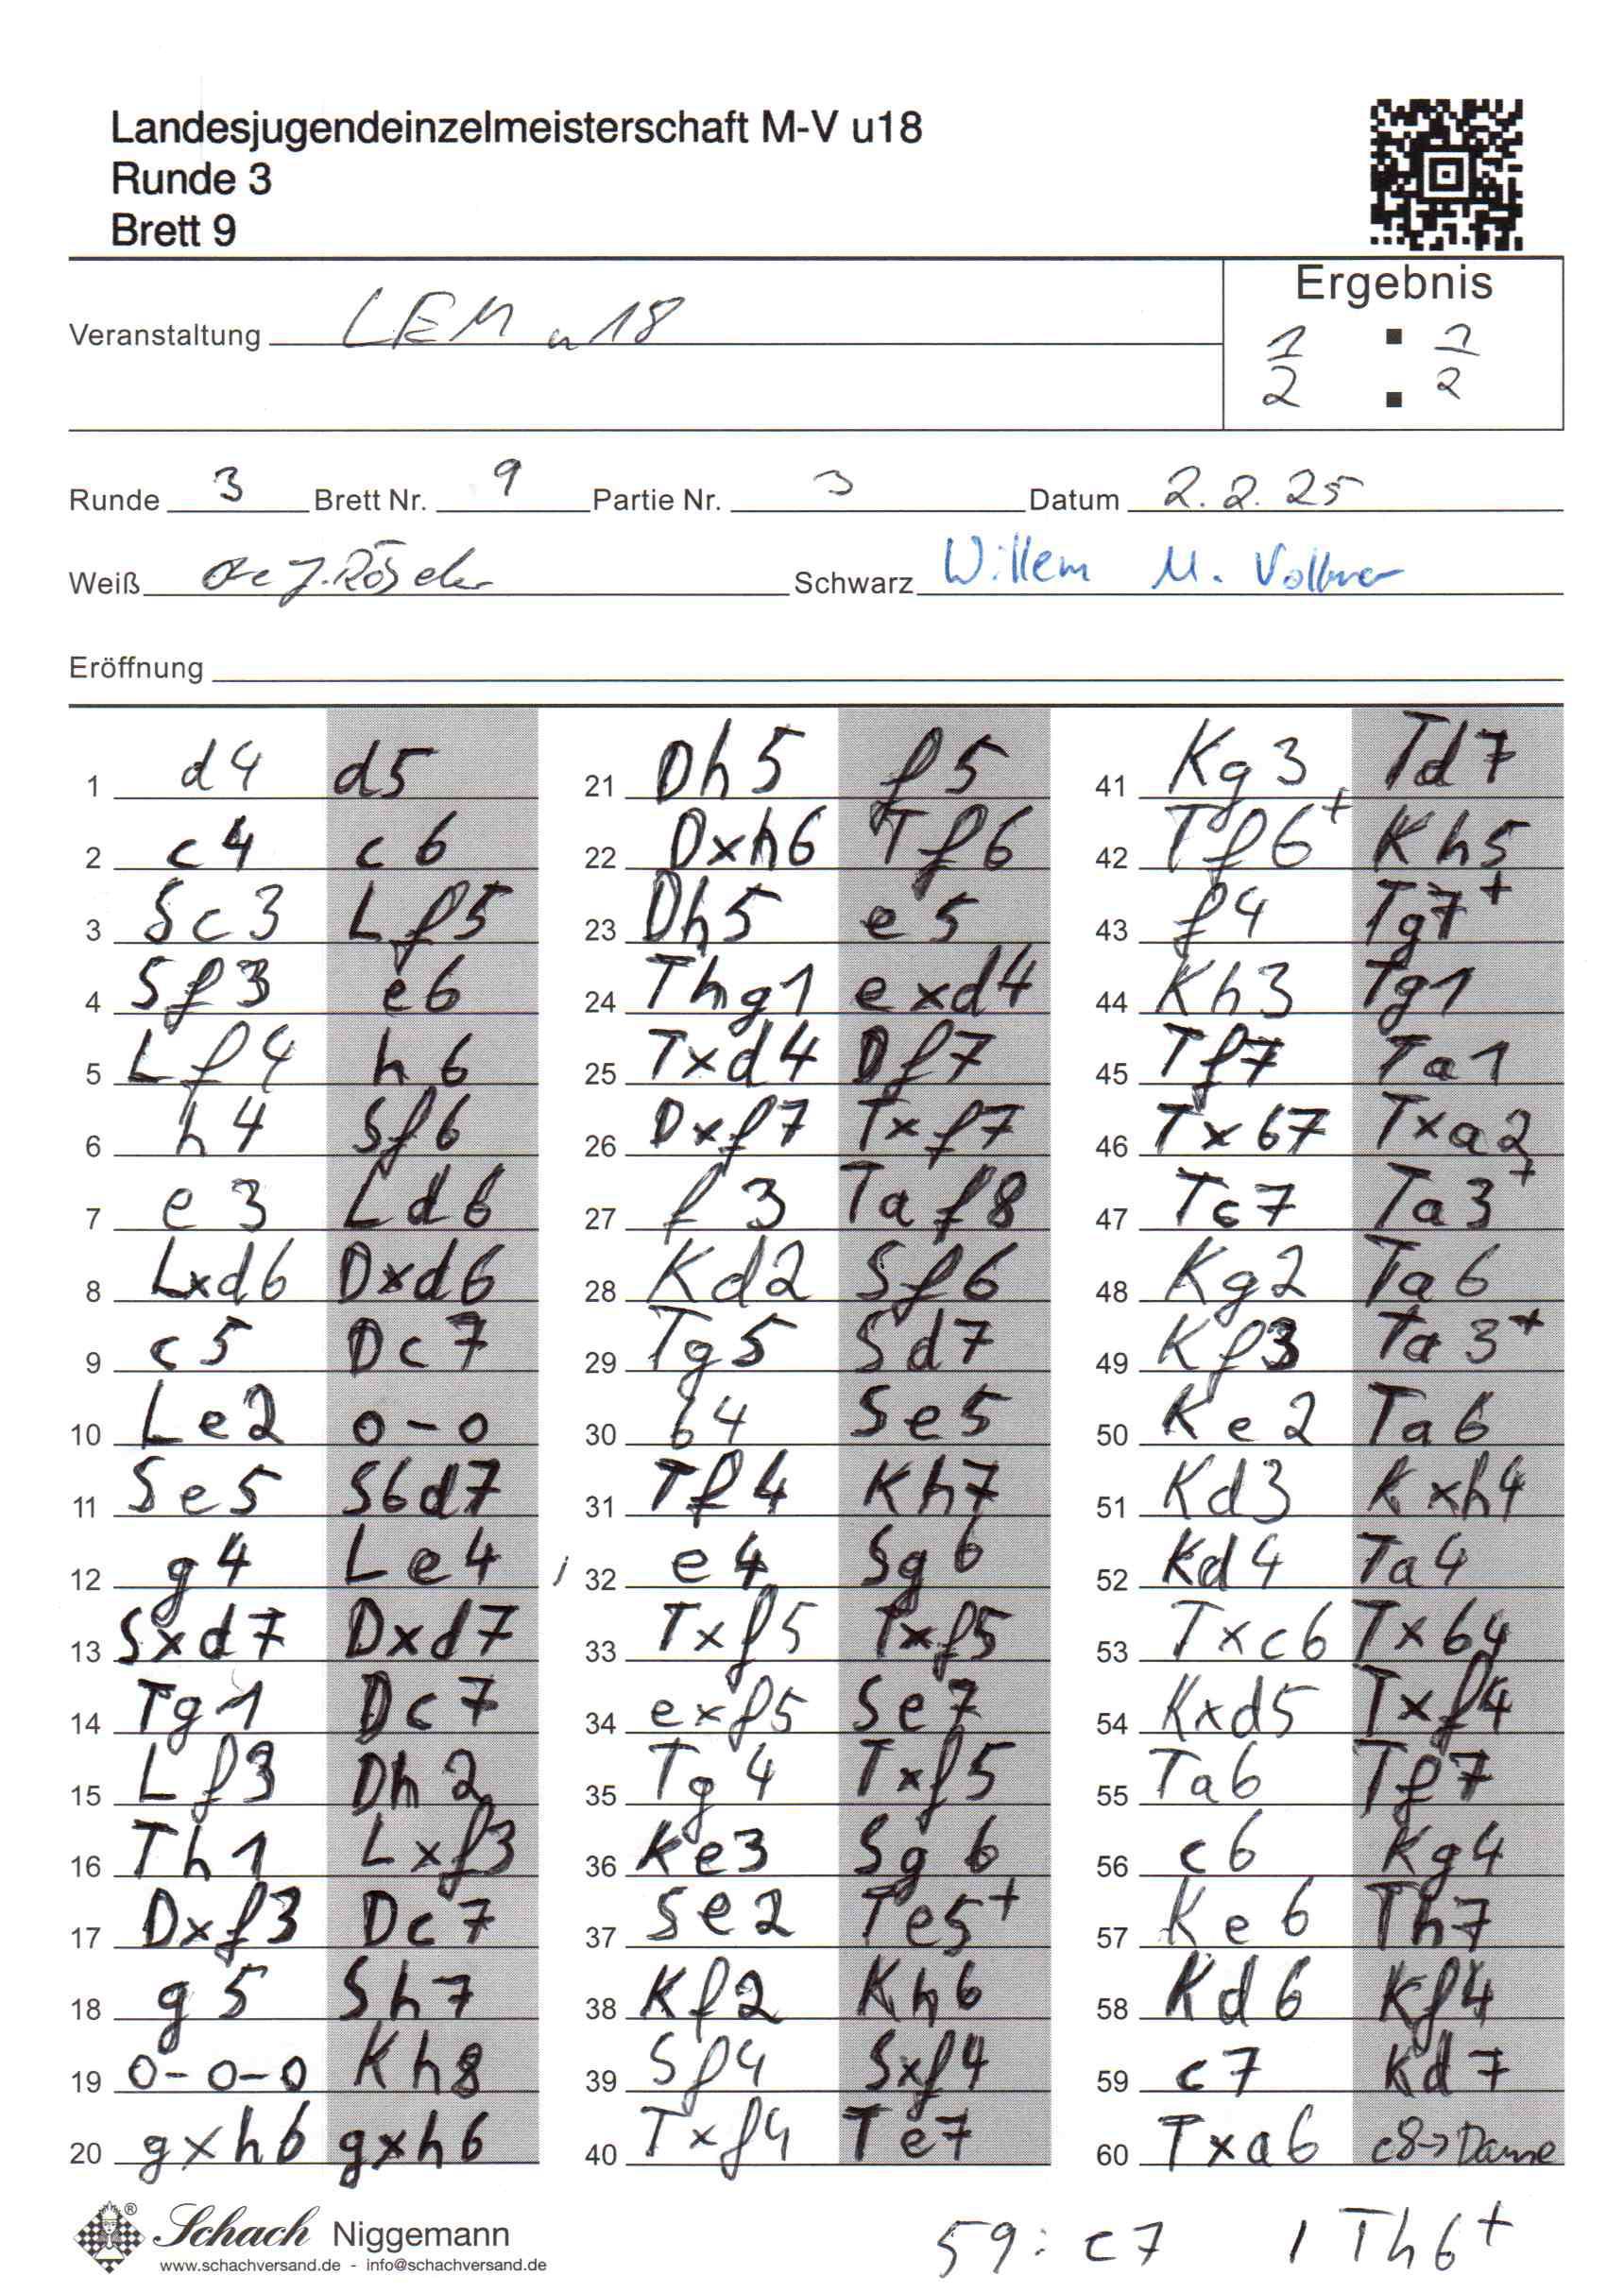 Landesjugendeinzelmeisterschaft M-V u18
Runde 3
Brett 9
Ergebnis
Veranstaltung LEM u18
1/2 : 1/2
Runde 3 Brett Nr. 9 Partie Nr. 3 Datum 2.2.25
Weiß J. Schwarz Willem M. Vollmer
Eröffnung
1 d4 d5
2 c4 c6
3 Sc3 Lf5
4 Sf3 e6
5 Lf4 h6
6 h4 Sf6
7 e3 Ld6
8 Lxd6 Dxd6
9 c5 Dc7
10 Le2 0-0
11 Se5 Sbd7
12 g4 Le4
13 Sxd7 Dxd7
14 Tg1 Dc7
15 Lf3 Dh2
16 Th1 Lxf3
17 Dxf3 Dc7
18 g5 Sh7
19 0-0-0 Kh8
20 gxh6 gxh6
21 Dh5 f5
22 Dxh6 Tf6
23 Dh5 e5
24 Thg1 exd4
25 Txd4 Df7
26 Dxf7 Txf7
27 f3 Taf8
28 Kd2 Sf6
29 Tg5 Sd7
30 b4 Se5
31 Tf4 Kh7
32 e4 Sg6
33 Txf5 Txf5
34 exf5 Se7
35 Tg4 Txf5
36 Ke3 Sg6
37 Se2 Te5+
38 Kf2 Kh6
39 Sf4 Sxf4
40 Txf4 Te7
41 Kg3 Td7
42 Tf6+ Kh5
43 f4 Tg7+
44 Kh3 Tg1
45 Tf7 Ta1
46 Txb7 Txa2
47 Tc7 Ta3+
48 Kg2 Ta6
49 Kf3 Ta3+
50 Ke2 Ta6
51 Kd3 Kxh4
52 Kd4 Ta4
53 Txc6 Txb4
54 Kxd5 Txf4
55 Ta6 Tf7
56 c6 Kg4
57 Ke6 Th7
58 Kd6 Kf4
59 c7 Kd7
60 Txa6 c8→Dame
Schach Niggemann
www.schachversand.de - info@schachversand.de
59: c7 / Th6+